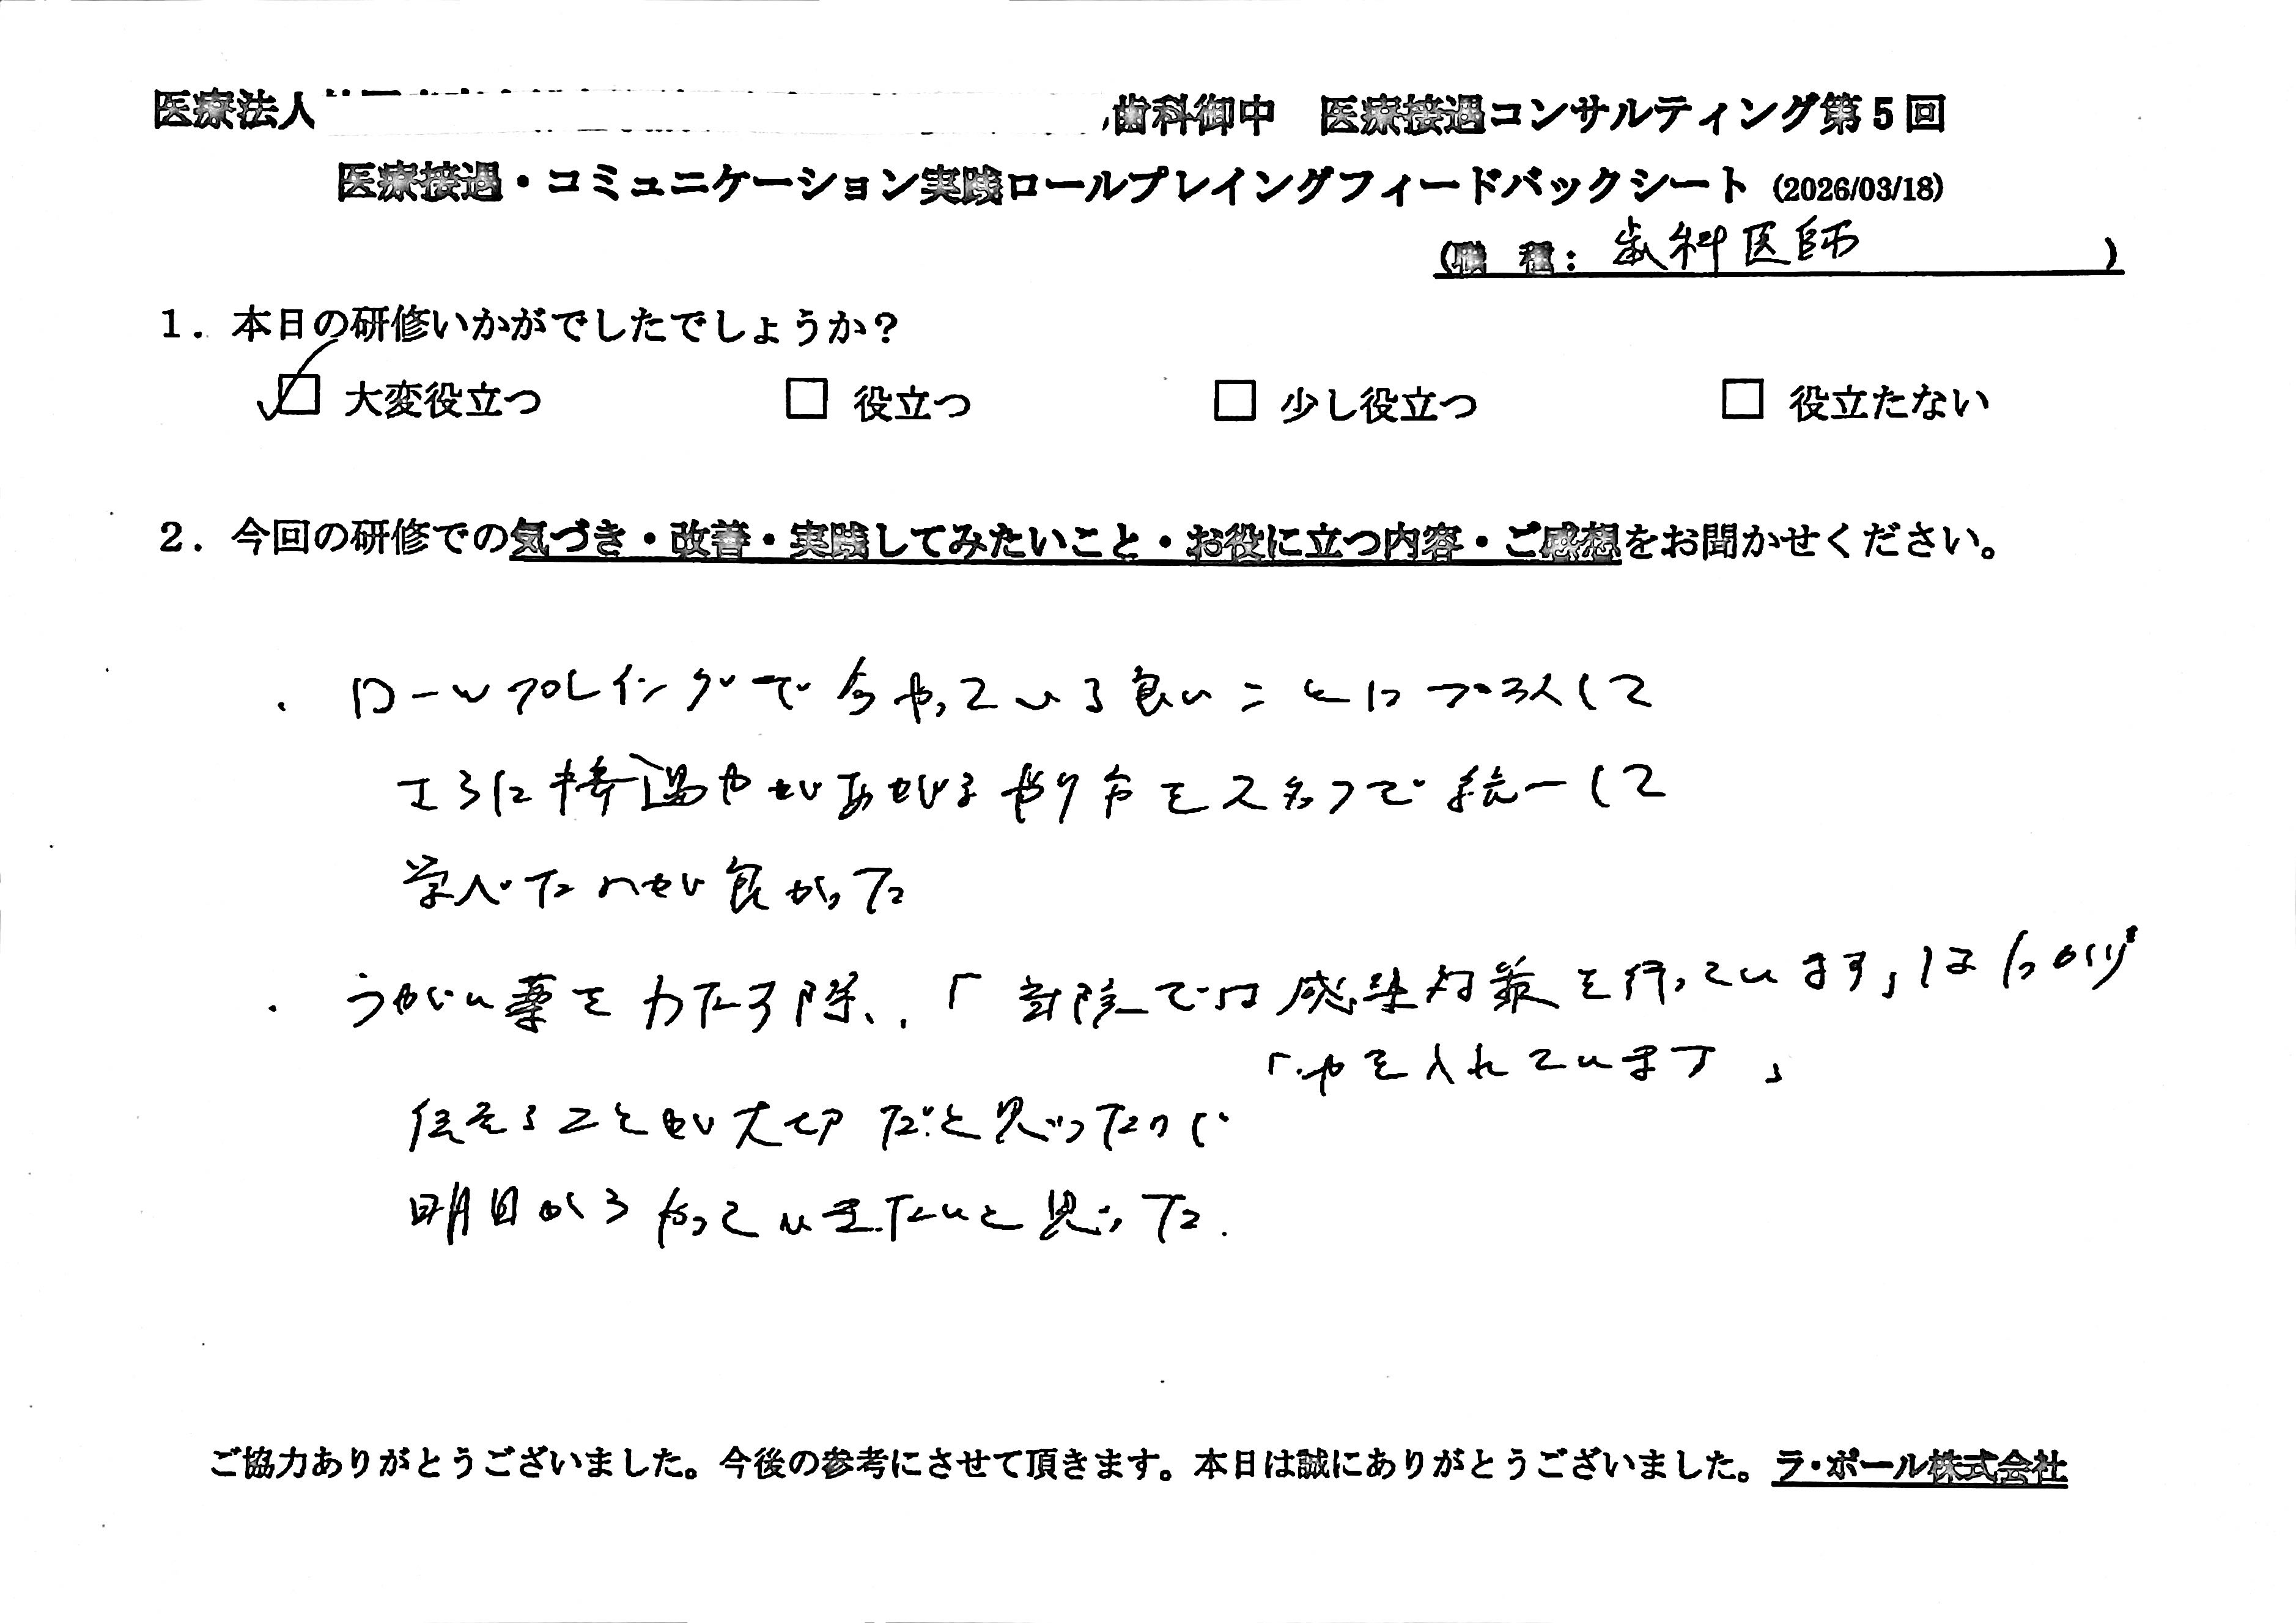 医療法人 歯科御中 医療接遇コンサルティング第5回
医療接遇・コミュニケーション実践ロールプレイングフィードバックシート (2026/03/18)
(職 種: 歯科医師 )
1. 本日の研修いかがでしたでしょうか?
☑ 大変役立つ □ 役立つ □ 少し役立つ □ 役立たない
2. 今回の研修での気づき・改善・実践してみたいこと・お役に立つ内容・ご感想をお聞かせください。
・ロールプレイングで今やっている良いことにプラスして
さらに接遇力があがるやり方をスタッフで統一して
学べたのが良かった
・うがい薬を 際、「当院では感染対策を行っています」はしっかり
「力を入れています」
伝えることが大切だと思ったので
明日からやっていきたいと思った.
ご協力ありがとうございました。今後の参考にさせて頂きます。本日は誠にありがとうございました。ラ・ポール株式会社